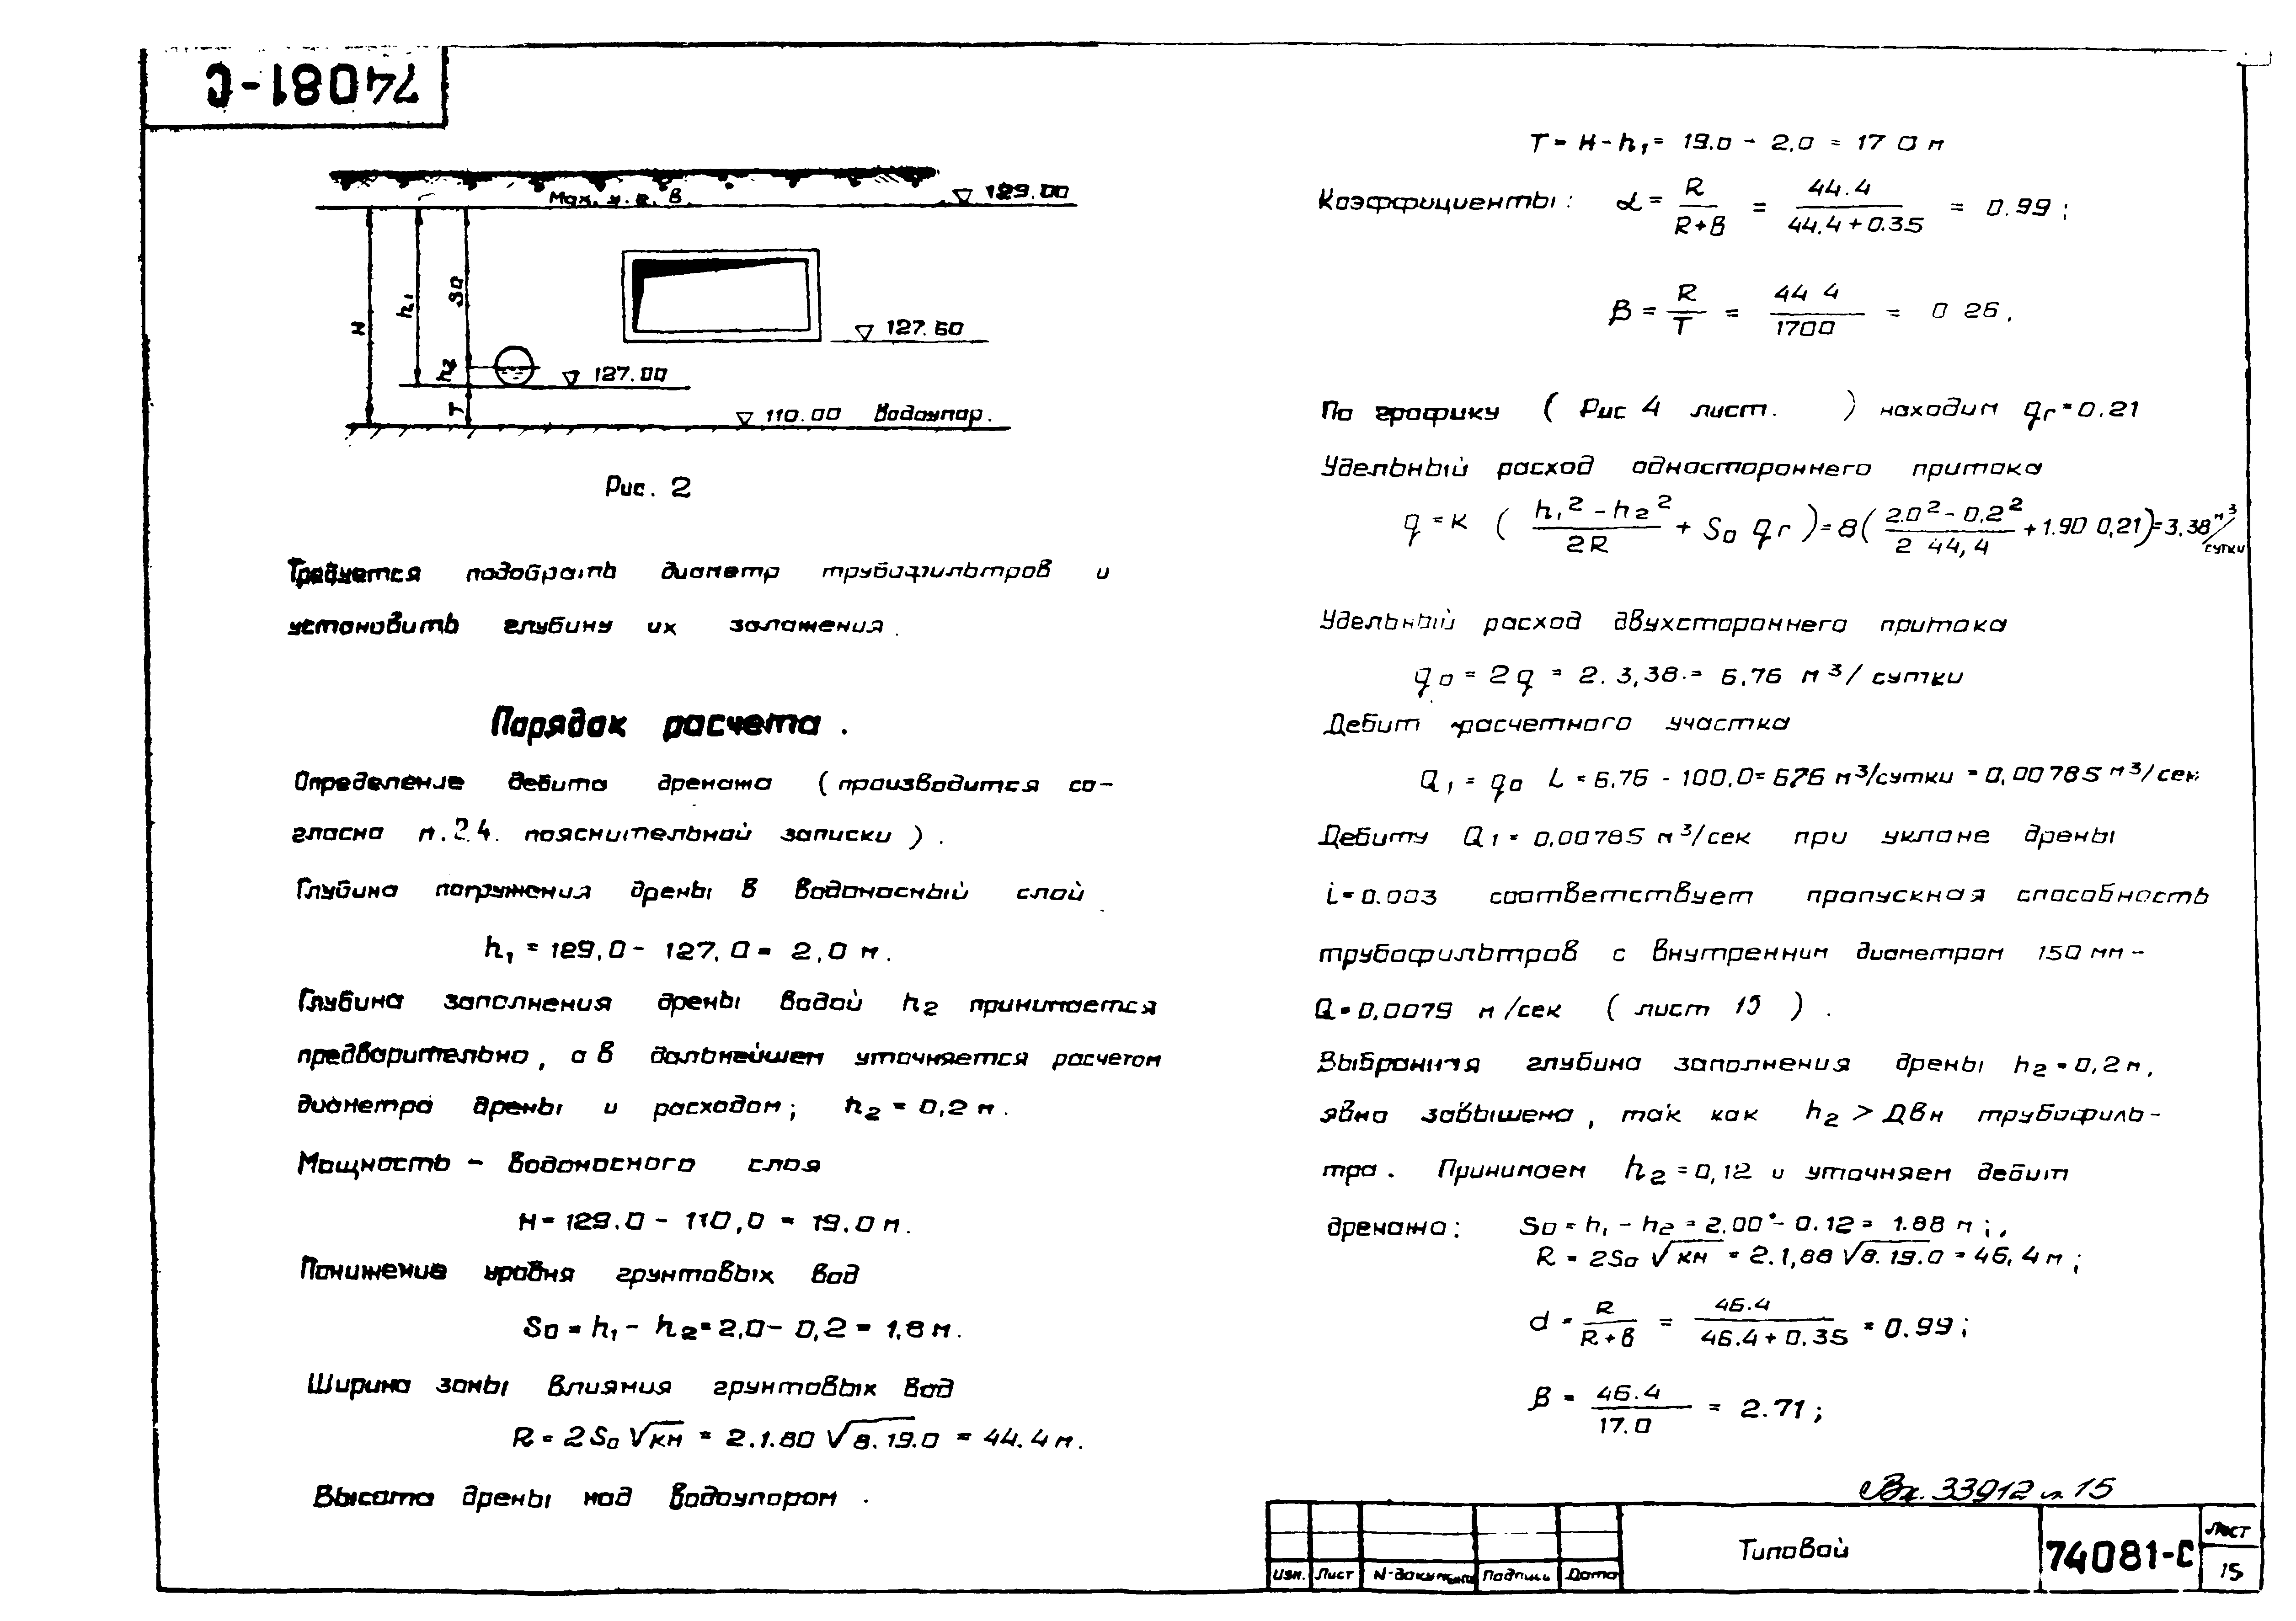 74081-С
Мах. у. г. в.
129.00
H
h1
S0
h2
T
127.60
127.00
110.00 Водоупор.
Рис. 2
Требуется подобрать диаметр трубофильтров и
установить глубину их заложения.
Порядок расчета.
Определение дебита дренажа (производится со-
гласно п. 2.4. пояснительной записки).
Глубина погружения дрены в водоносный слой
h₁ = 129,0 - 127,0 = 2,0 м.
Глубина заполнения дрены водой h₂ принимается
предварительно, а в дальнейшем уточняется расчетом
диаметра дрены и расходом; h₂ = 0,2 м.
Мощность - водоносного слоя
H = 129.0 - 110,0 = 19.0 м.
Понижение уровня грунтовых вод
S₀ = h₁ - h₂ = 2,0 - 0,2 = 1,8 м.
Ширина зоны влияния грунтовых вод
R = 2S₀ √кн = 2.1.80 √8.19.0 = 44.4 м.
Высота дрены над водоупором.
T = H - h₁ = 19.0 - 2,0 = 17 0 м
Коэффициенты: α = R / R+B = 44.4 / 44,4+0.35 = 0.99;
β = R / T = 44 4 / 1700 = 0 26.
По графику (Рис 4 лист. ) находим qr = 0.21
Удельный расход одностороннего притока
q = к ( h₁² - h₂² / 2R + S₀ qr ) = 8 ( 2.0² - 0,2² / 2 44,4 + 1.90 0,21 ) = 3,38 м³/сутки
Удельный расход двухстороннего притока
q₀ = 2q = 2. 3,38. = 6.76 м³/сутки
Дебит расчетного участка
Q₁ = q₀ L = 6,76 - 100,0 = 676 м³/сутки = 0,00785 м³/сек
Дебиту Q₁ = 0,00785 м³/сек при уклоне дрены
i = 0.003 соответствует пропускная способность
трубофильтров с внутренним диаметром 150 мм -
Q = 0,0079 м /сек (лист 15).
Выбранная глубина заполнения дрены h₂ = 0,2 м,
явно завышена, так как h₂ > Двн трубофиль-
тра. Принимаем h₂ = 0,12 и уточняем дебит
дренажа: S₀ = h₁ - h₂ = 2.00 - 0.12 = 1.88 м;
R = 2S₀ √кн = 2.1,88 √8.19.0 = 46,4 м;
d = R / R+B = 46.4 / 46.4+0,35 = 0.99;
β = 46.4 / 17.0 = 2.71;
Вх. 33912 л. 15
Изм. Лист N-документа Подпись Дата
Типовой
74081-С
Лист
15